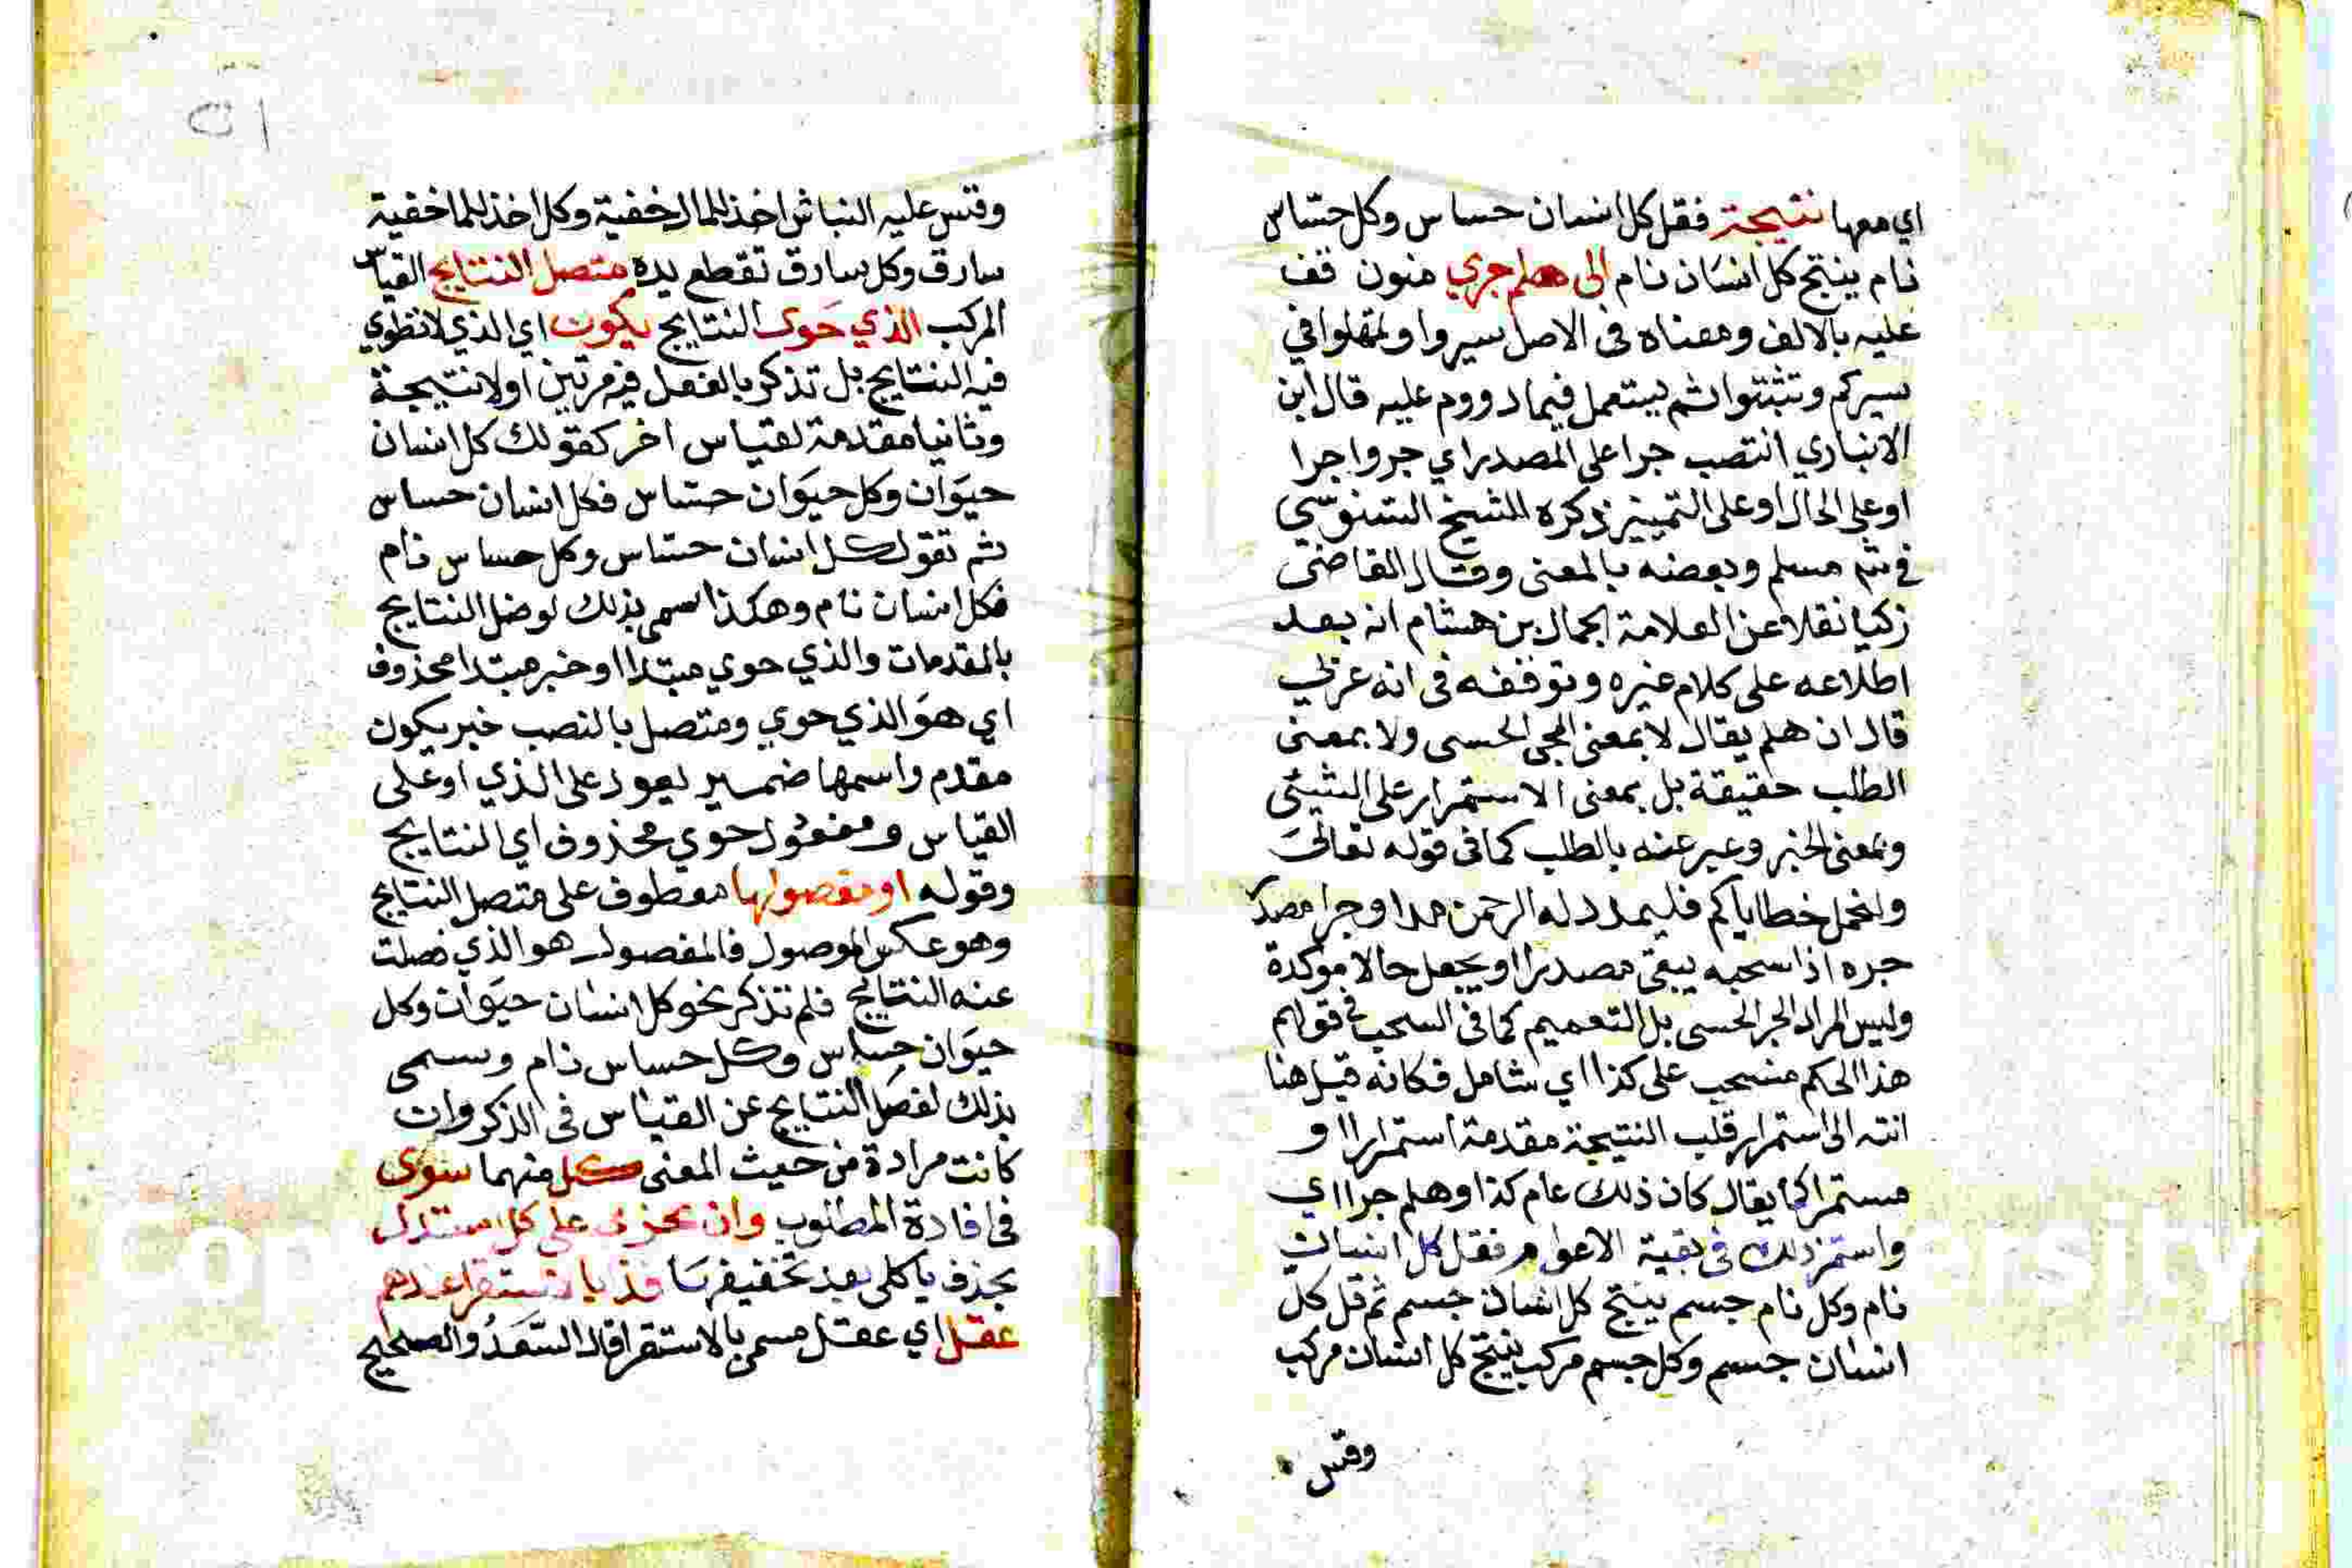 اي معها نتيجة فقل كل انسان حساس وكل حساس
نام ينتج كل انسان نام الى هلم جري منون قف
عليه بالالف ومعناه في الاصل سيروا وتمهلوا في
سيركم وتثبتوا ثم يستعمل فيما دووم عليه قال ابن
الانباري انتصب جرا على المصدر اي جروا جرا
او على الحال او على التمييز ذكره الشيخ السنوسي
في شم مسلم وبعضه بالمعنى وقال القاضي
زكريا نقلا عن العلامة الجمال بن هشام انه بعد
اطلاعه على كلام غيره وتوقفه في انه عربي
قال ان هلم يقال لا بمعنى المجي الحسي ولا بمعنى
الطلب حقيقة بل بمعنى الاستمرار على الشيئ
وبمعنى الخبر وعبر عنه بالطلب كما في قوله تعالى
ولنحمل خطاياكم فليمدد له الرحمن مدا وجرا مصدر
جره اذا سحبه يبقى مصدرا او يجعل حالا موكدة
وليس المراد الجر الحسي بل التعميم كما في السحب في قولهم
هذا الحكم منسحب على كذا اي شامل فكانه قيل هنا
انته الى استمرار قلب النتيجة مقدمة استمرارا او
مستمرا كما يقال كان ذلك عام كذا وهلم جرا اي
واستمر ذلك في بقية الاعوام فقل كل انسان
نام وكل نام جسم ينتج كل انسان جسم ثم قل كل
انسان جسم وكل جسم مركب ينتج كل انسان مركب
وقس
٢١
وقس عليه النباش اخذ للمال خفية وكل اخذ للما خفية
سارق وكل سارق تقطع يده متصل النتايج القياس
المركب الذي حوى النتايج يكون اي الذي لا تطوي
فيه النتايج بل تذكر بالفعل فيه مرتين اولا نتيجة
وثانيا مقدمة لقياس اخر كقولك كل انسان
حيوان وكل حيوان حساس فكل انسان حساس
ثم تقول كل انسان حساس وكل حساس نام
فكل انسان نام وهكذا سمي بذلك لوصل النتايج
بالمقدمات والذي حوي مبتدا او خبر مبتدا محذوف
اي هو الذي حوي ومتصل بالنصب خبر يكون
مقدم واسمها ضمير يعود على الذي او على
القياس ومفعول حوي محذوف اي النتايج
وقوله او مفصولها معطوف على متصل النتايج
وهو عكس الموصول فالمفصول هو الذي فصلت
عنه النتايج فلم تذكر نحو كل انسان حيوان وكل
حيوان حساس وكل حساس نام وسمي
بذلك لفصل النتايج عن القياس في الذكر وان
كانت مرادة من حيث المعنى كل منهما سوى
في افادة المطلوب وان بجزئ على كل استدل
بحذف يا كلي بعد تخفيفها فذا بالاستقرا عندهم
عقل اي عقل مسمي بالاستقرا قال السعد والصحيح